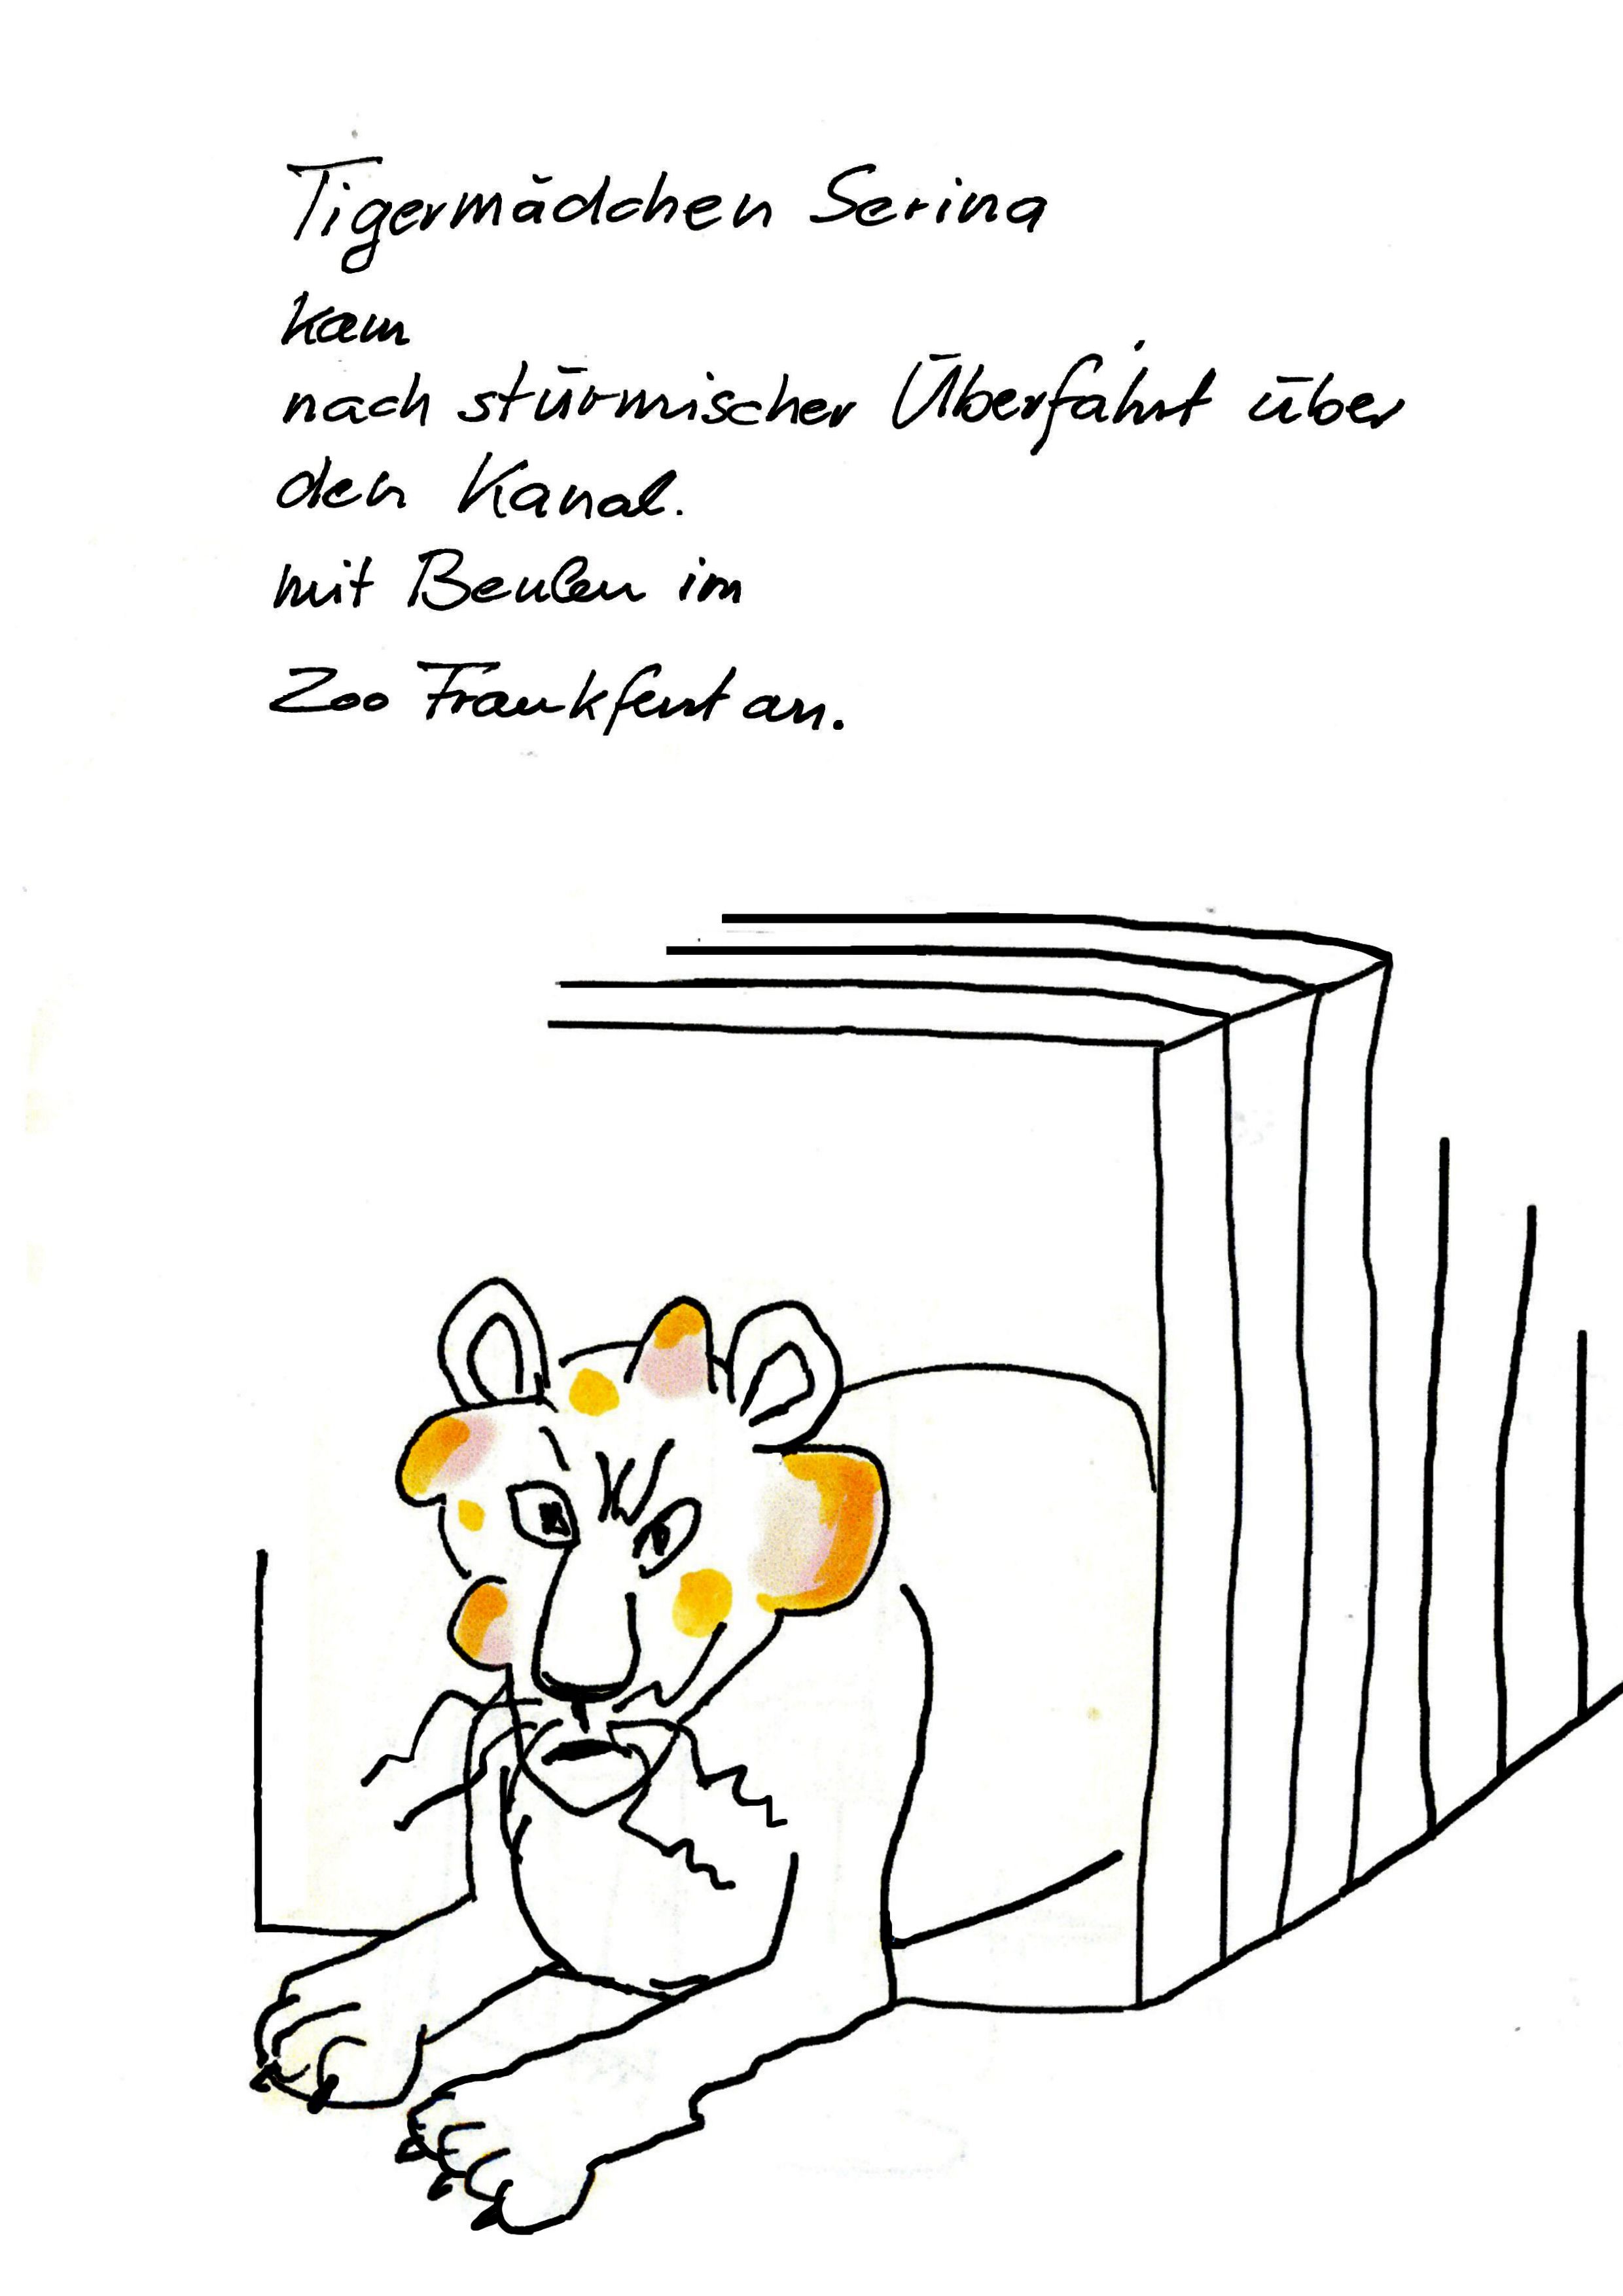 Tigermädchen Serina
kam
nach stürmischer Überfahrt über
den Kanal.
mit Beulen im
Zoo Frankfurt an.